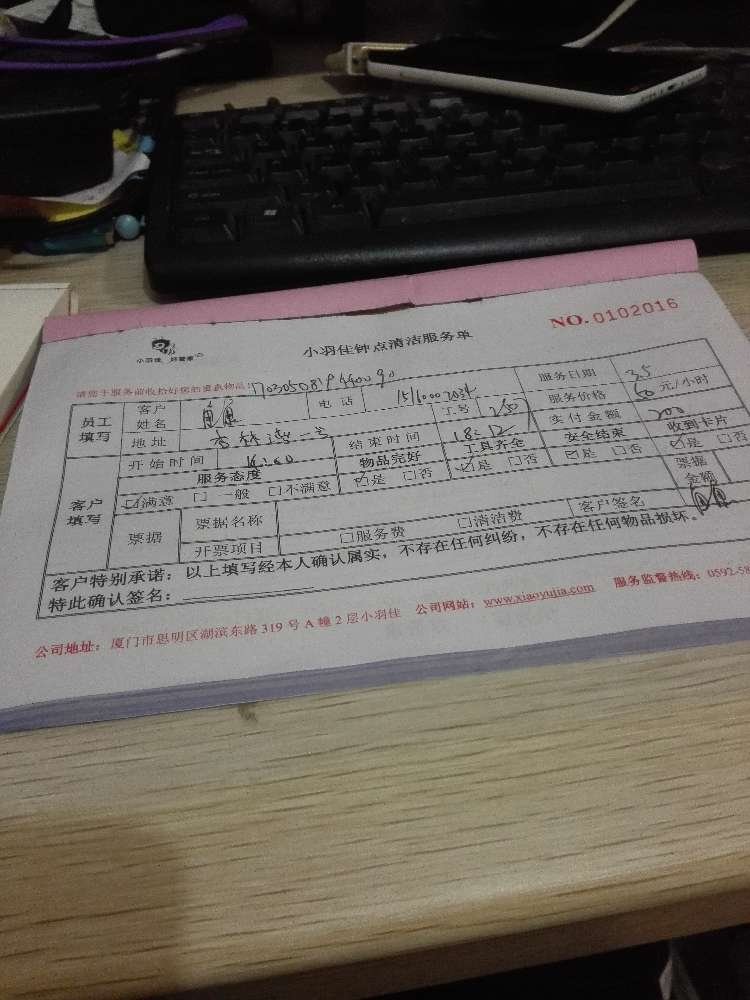 小羽佳 好管家
小羽佳钟点清洁服务单
NO.0102016
请您于服务前收拾好您的贵重物品!
员工填写
客户姓名
电话
服务日期 3.5
地址
工号
服务价格 元/小时
开始时间
结束时间 18:12
实付金额 200
客户填写
服务态度
物品完好
工具齐全
安全结束
收到卡片
☑满意 □一般 □不满意
☑是 □否
☑是 □否
☑是 □否
☑是 □否
票据
票据名称
客户签名
票据金额
开票项目
□服务费
□清洁费
客户特别承诺:以上填写经本人确认属实,不存在任何纠纷,不存在任何物品损坏。
特此确认签名:
公司地址:厦门市思明区湖滨东路319号A幢2层小羽佳 公司网站:www.xiaoyujia.com 服务监督热线:0592-58